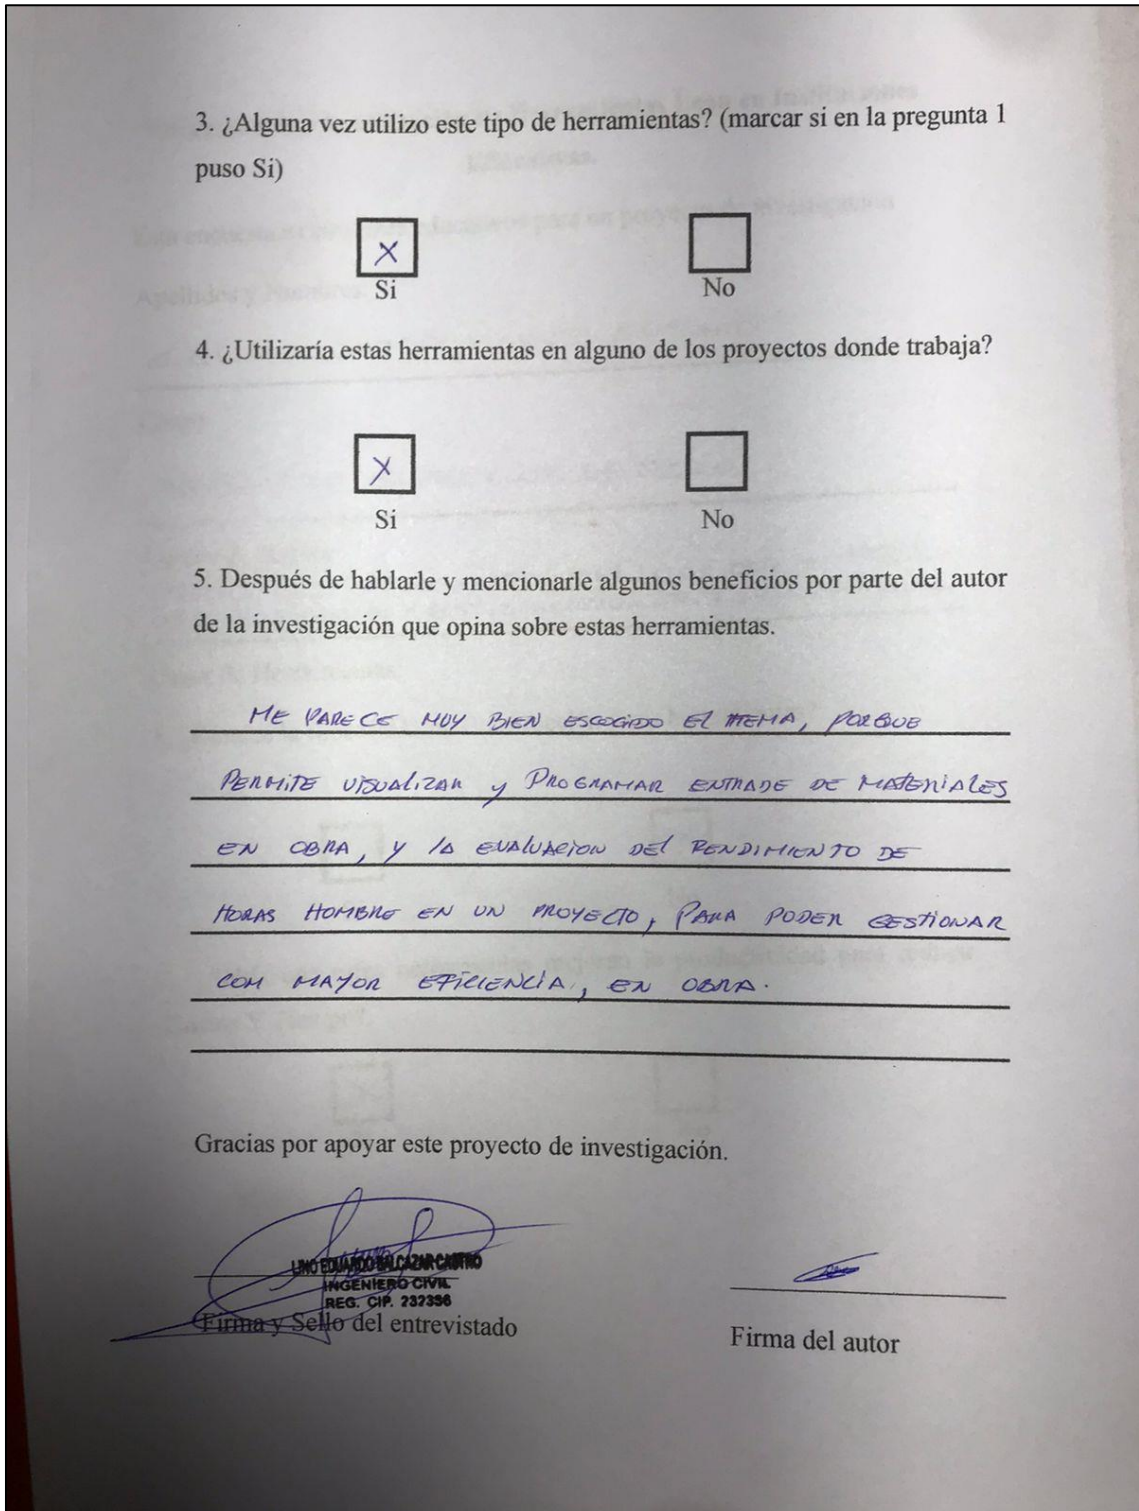 3. ¿Alguna vez utilizo este tipo de herramientas? (marcar si en la pregunta 1
puso Si)
X
Si No
4. ¿Utilizaría estas herramientas en alguno de los proyectos donde trabaja?
X
Si No
5. Después de hablarle y mencionarle algunos beneficios por parte del autor
de la investigación que opina sobre estas herramientas.
ME PARECE MUY BIEN ESCOGIDO El TEMA, PORQUE
PERMITE VISUALIZAR y PROGRAMAR ENTRADE DE MATERIALES
EN OBRA, Y lA EVALUACION DEl RENDIMIENTO DE
HORAS HOMBRE EN UN PROYECTO, PARA PODER GESTIONAR
CON MAYOR EFICIENCIA, EN OBRA.
Gracias por apoyar este proyecto de investigación.
LINO EDUARDO BALCAZAR CASTRO
INGENIERO CIVIL
REG. CIP. 232336
Firma y Sello del entrevistado
Firma del autor